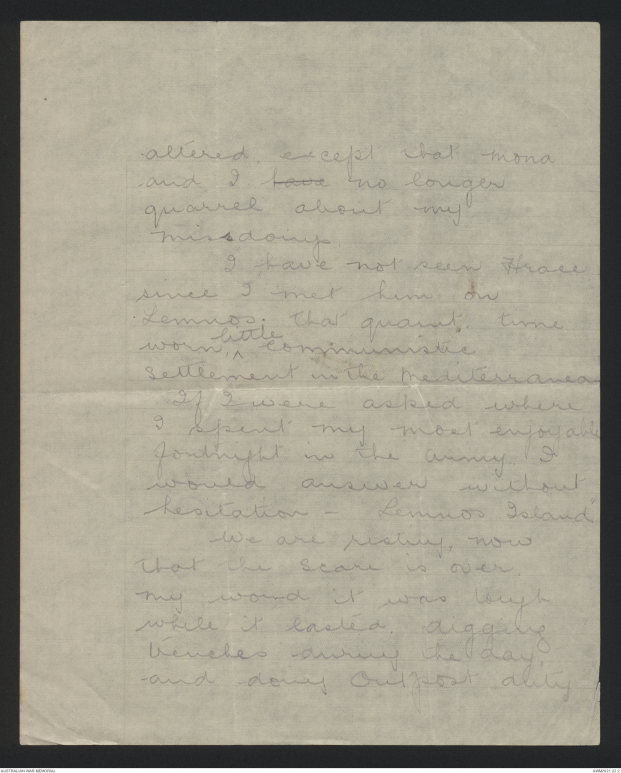 altered, except that Mona
and I have no longer
quarrel about my
missdoings.
I have not seen Horace
since I met him on
Lemnos. That quaint, time
worn, little communistic
settlement in the Mediterranean
If I were asked where
I spent my most enjoyable
fortnight in the army. I
would answer without
hesitation – Lemnos Island"
We are resting, now
that the scare is over.
My word it was tough
while it lasted. digging
trenches during the day,
and doing Outpost duty
AUSTRALIAN WAR MEMORIAL